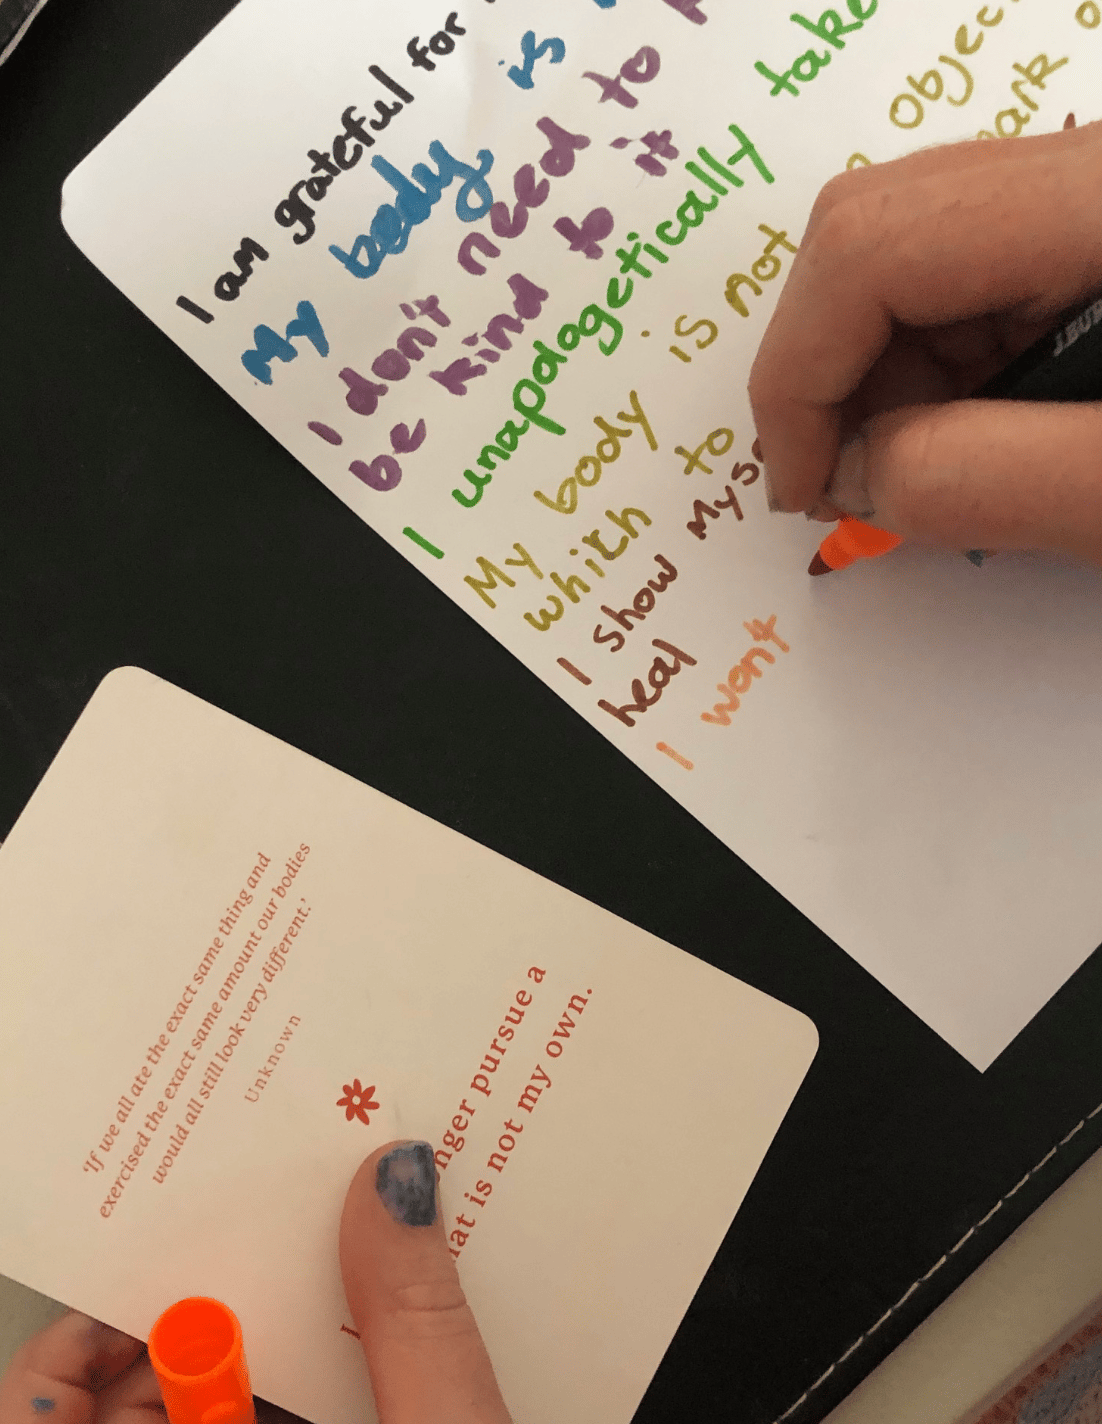 I am grateful for
My body is
I don't need to
be kind to it
I unapologetically take
My body is not object
which to mark
I show mys
heal
I wont
'If we all ate the exact same thing and
exercised the exact same amount our bodies
would all still look very different.'
Unknown
nger pursue a
hat is not my own.